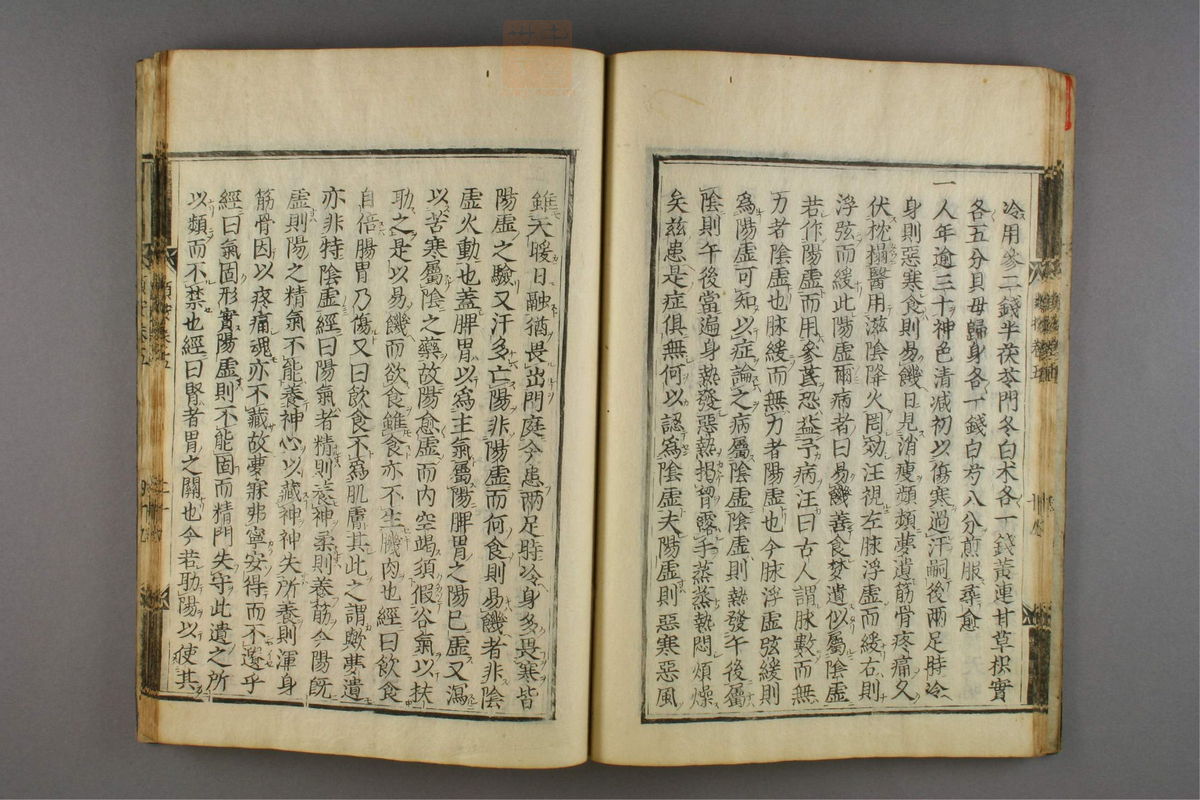 冷用參二錢半茯苓門冬白朮各一錢黃連甘草枳實
各五分貝母歸身各一錢白芍八分煎服尋愈
一人年逾三十神色清減初以傷寒過汗嗣後兩足時冷
身則惡寒食則易饑日見消瘦頻頻夢遺筋骨疼痛久
伏枕榻醫用滋陰降火罔効汪視左脉浮虛而緩右則
浮弦而緩此陽虛爾病者曰易饑善食夢遺似屬陰虛
若作陽虛而用參芪恐益予病汪曰古人謂脉數而無
力者陰虛也脉緩而無力者陽虛也今脉浮虛弦緩則
爲陽虛可知以症論之病屬陰虛陰虛則熱發午後屬
陰則午後當遍身熱發惡熱揭胷露手蒸蒸熱悶煩燥
矣兹患是症俱無何以認爲陰虛夫陽虛則惡寒惡風
雖天暖日融猶畏出門庭今患兩足時冷身多畏寒皆
陽虛之驗又汗多亡陽非陽虛而何食則易饑者非陰
虛火動也蓋脾胃以爲主氣屬陽脾胃之陽已虛又瀉
以苦寒屬陰之藥故陽愈虛而内空竭須假谷氣以扶
助之是以易饑而欲食雖食亦不生肌肉也經曰飲食
自倍腸胃乃傷又曰飲食不爲肌膚其此之謂歟夢遺
亦非特陰虛經曰陽氣者精則養神柔則養筋今陽旣
虛則陽之精氣不能養神心以藏神神失所養則渾身
筋骨因以疼痛魂亦不藏故夢寐弗寧安得而不遺乎
經曰氣固形實陽虛則不能固而精門失守此遺之所
以頻而不禁也經曰腎者胃之關也今若助陽以使其